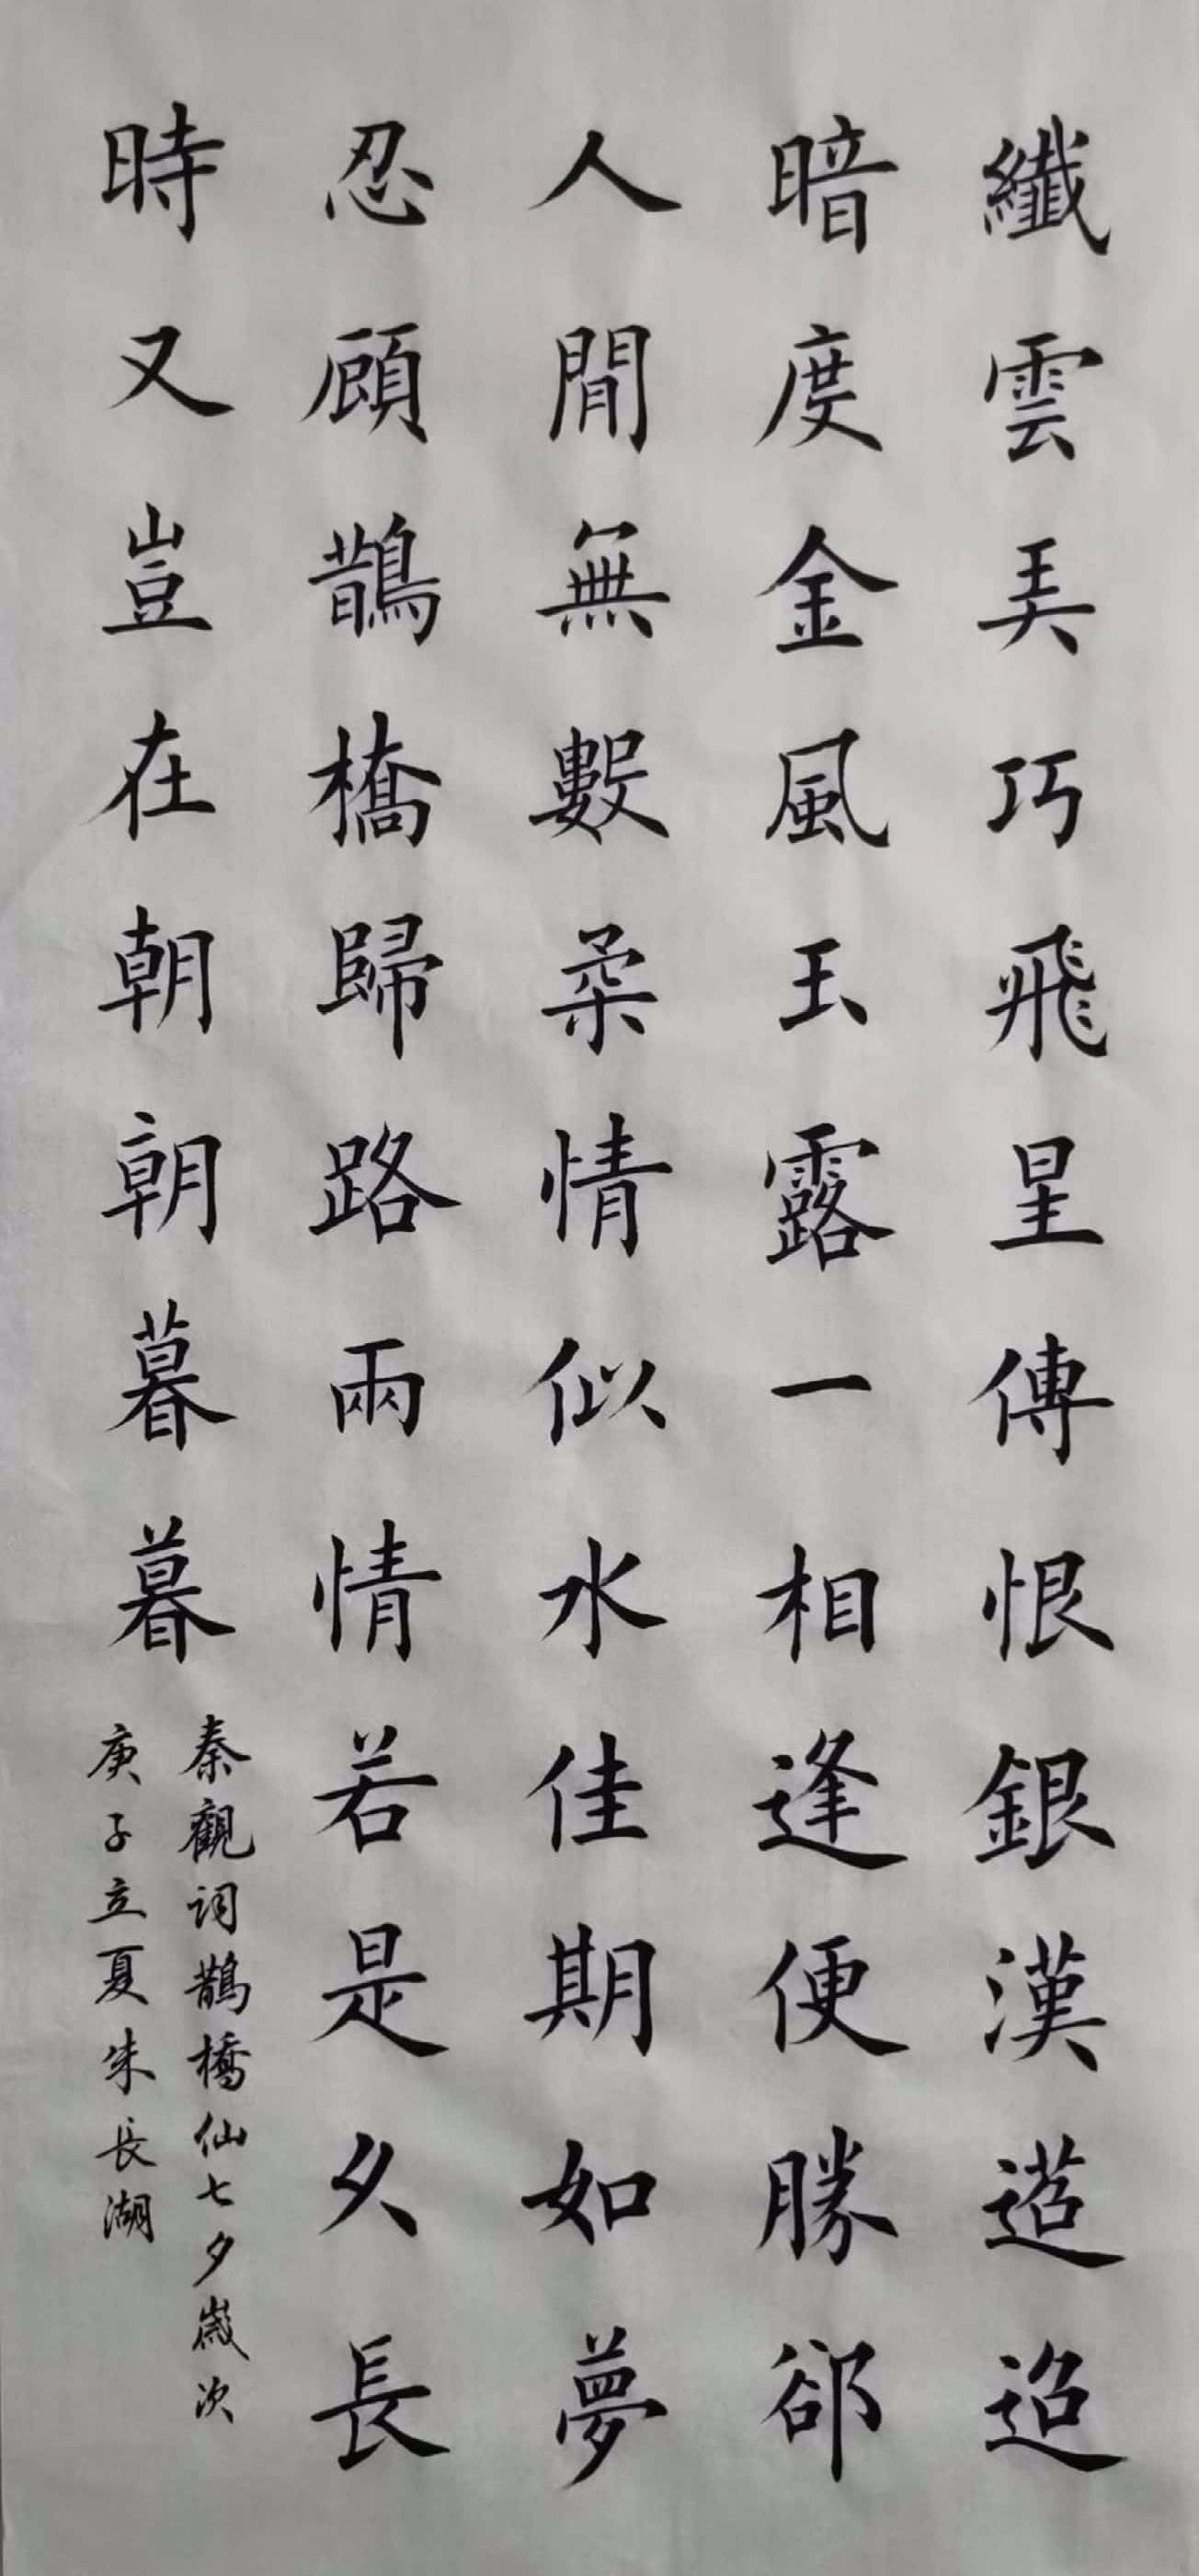 纖雲弄巧飛星傳恨銀漢迢迢
暗度金風玉露一相逢便勝郤
人閒無數柔情似水佳期如夢
忍顧鵲橋歸路兩情若是久長
時又豈在朝朝暮暮
秦觀詞鵲橋仙七夕歲次
庚子立夏朱長湖